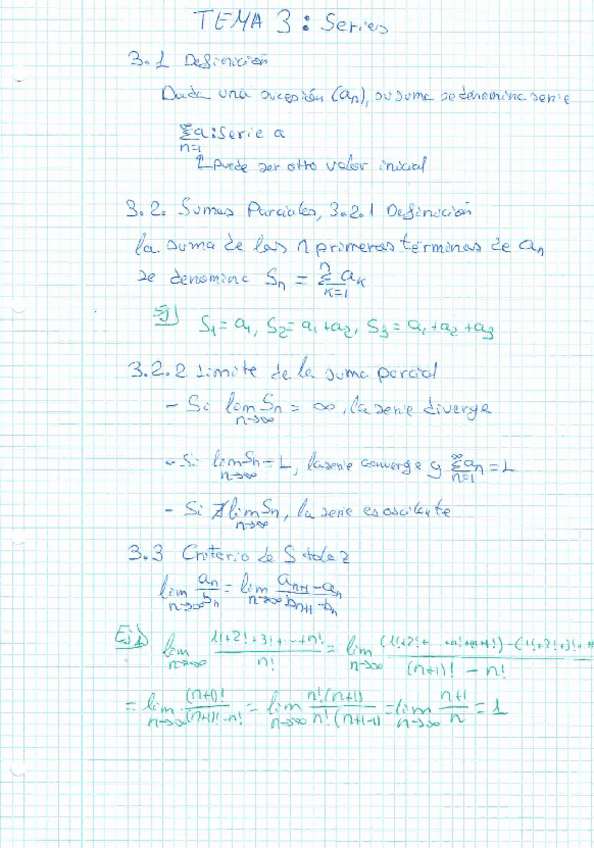 TEMA 3: Series
3.1 Definición
Dada una sucesión (an), su suma se denomina serie
∞Σn=1 a: Serie a
↳ Puede ser otro valor inicial
3.2. Sumas Parciales, 3.2.1 Definición
la suma de los n primeros términos de an
se denomina Sn = nΣk=1 ak
Ej) S1 = a1, S2 = a1 + a2, S3 = a1 + a2 + a3
3.2.2 Limite de la suma parcial
- Si lim n→∞ Sn = ∞, la serie diverge
- Si lim n→∞ Sn = L, la serie converge y ∞Σn=1 an = L
- Si ∄ lim n→∞ Sn, la serie es oscilante
3.3 Criterio de Stolz
lim n→∞ an/bn = lim n→∞ (an+1 - an)/(bn+1 - bn)
Ej1) lim n→∞ (1!+2!+3!+...+n!)/n! = lim n→∞ ((1!+2!+...+n!+(n+1)!)-(1!+2!+3!+...))/((n+1)! - n!)
= lim n→∞ (n+1)!/((n+1)!-n!) = lim n→∞ n!(n+1)/(n!(n+1-1)) = lim n→∞ (n+1)/n = 1